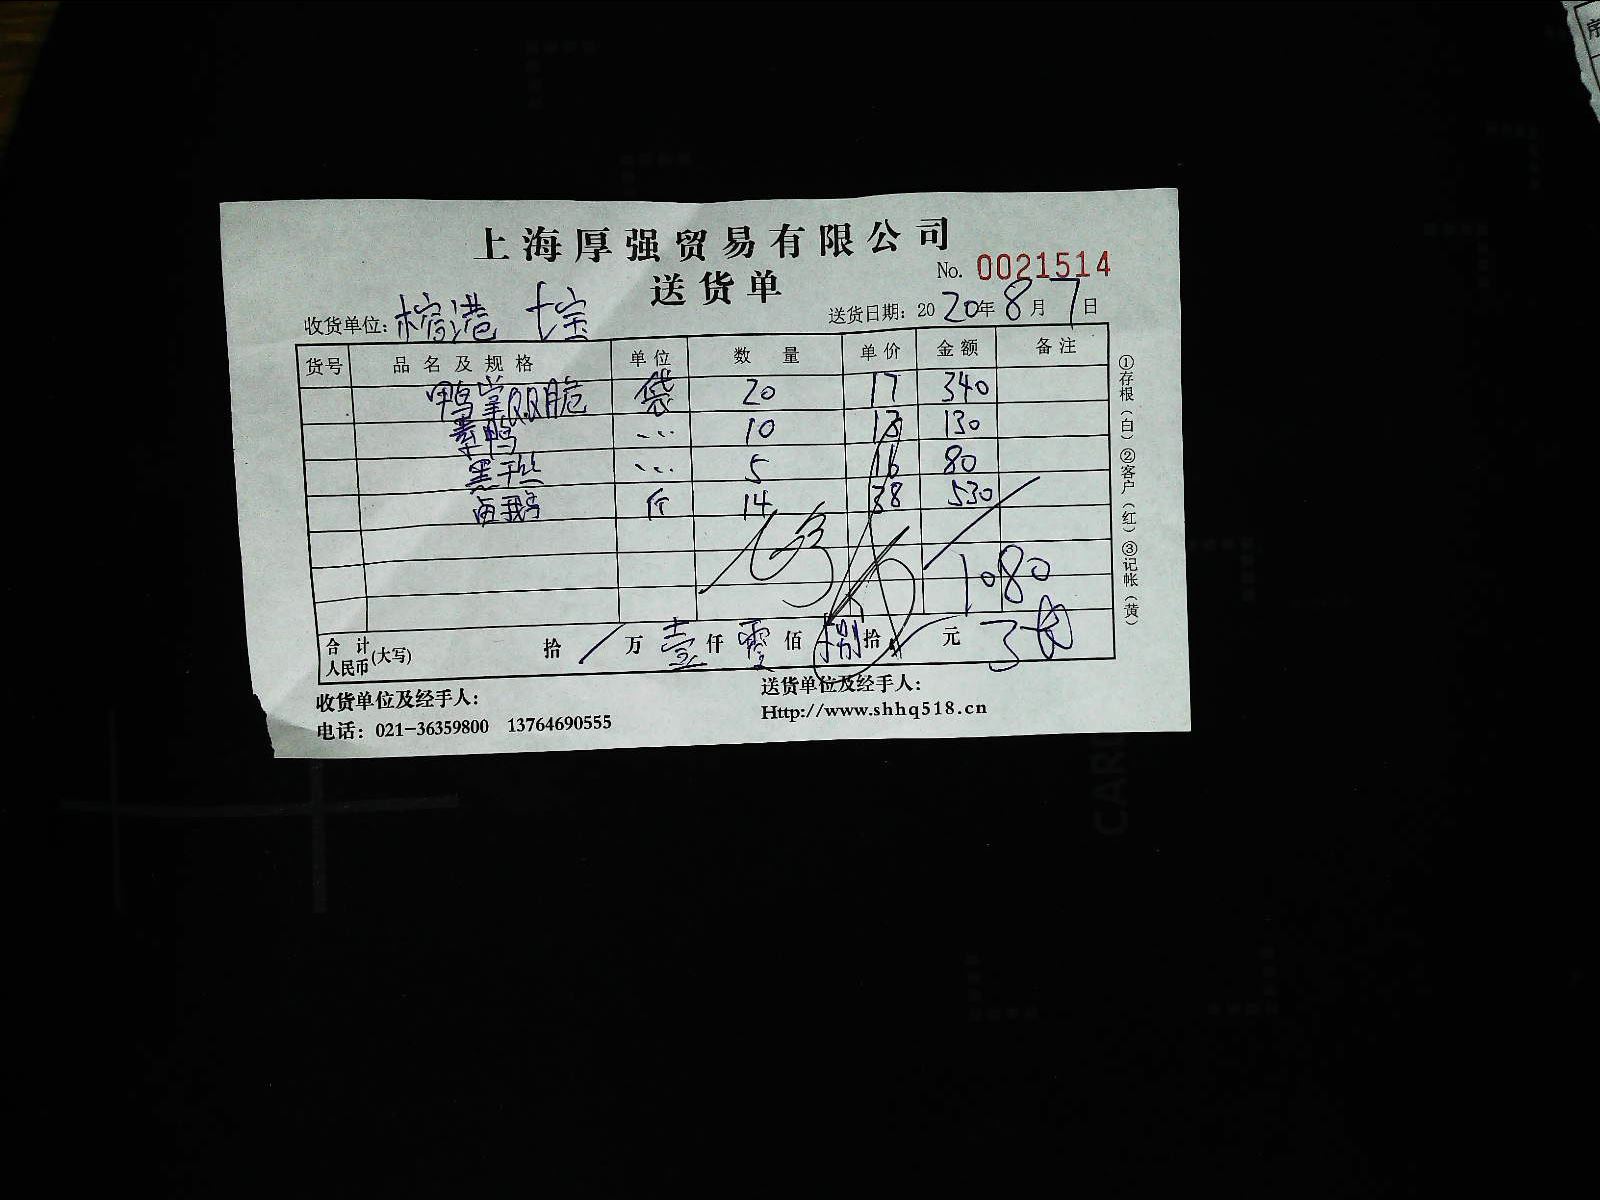 上海厚强贸易有限公司
送货单
No. 0021514
收货单位: 榕港 七宝
送货日期: 2020年8月7日
货号 品名及规格 单位 数量 单价 金额 备注
鸭掌QQ脆 袋 20 17 340
素鸭 … 10 13 130
黑干丝 … 5 16 80
卤鹅 斤 14 38 530
1080
合计人民币(大写) 拾 / 万 壹 仟 零 佰 捌 拾 元
①存根(白) ②客户(红) ③记帐(黄)
收货单位及经手人:
送货单位及经手人:
电话: 021-36359800 13764690555
Http://www.shhq518.cn
序